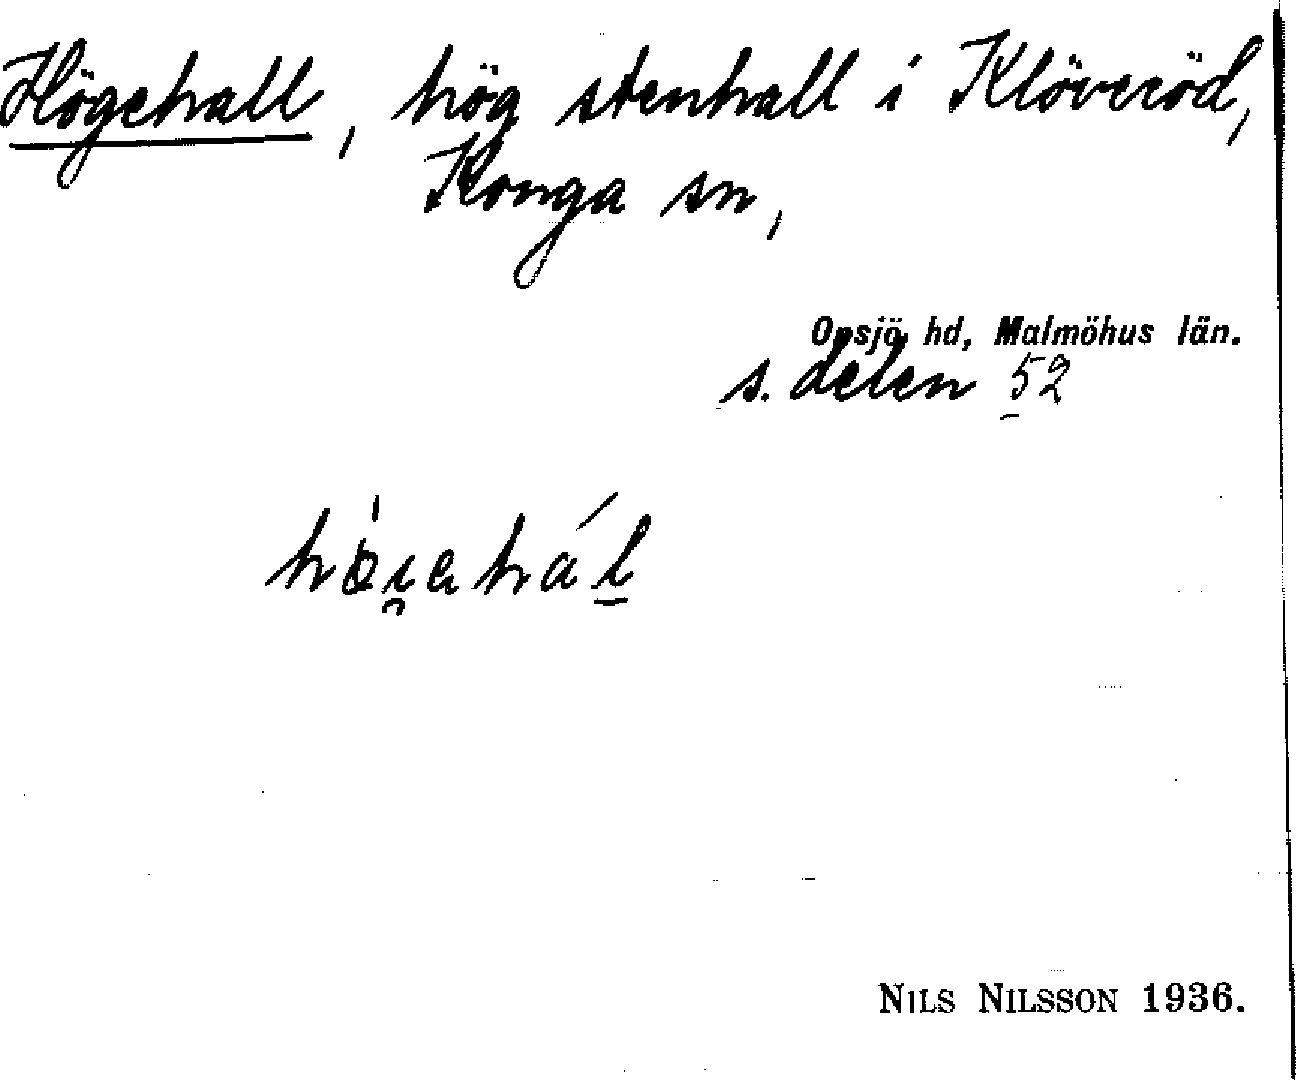 Högehall, hög stenhall i Klöveröd,
Konga sn,
Onsjö hd, Malmöhus län.
s. delen 52
NILS NILSSON 1936.